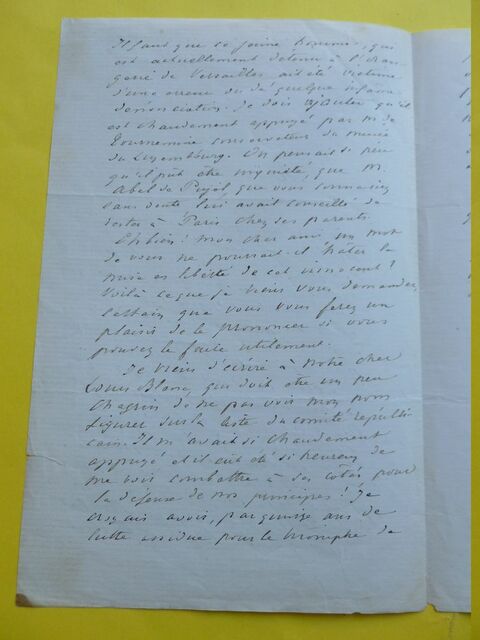 Il faut que ce jeune homme, qui
est actuellement détenu à l'Oran-
gerie de Versailles ait été victime
d'une erreur ou de quelque infâme
dénonciation. Je dois ajouter qu'il
est chaudement appuyé par M. de
Tournemine conservateur du musée
du Luxembourg. On pensait si peu
qu'il pût être inquiété, que M.
Abel de Pujol que vous connaissez
sans doute lui avait conseillé de
rester à Paris chez ses parents.
Eh bien! mon cher ami un mot
de vous ne pourrait-il hâter la
mise en liberté de cet innocent?
Voilà ce que je viens vous demander,
certain que vous vous ferez un
plaisir de le prononcer si vous
pouvez le faire utilement.
Je viens d'écrire à notre cher
Louis Blanc, qui doit être un peu
chagrin de ne pas voir mon nom
figurer sur la liste du comité républi-
cain. Il m'avait si chaudement
appuyé et il eût été si heureux de
me voir combattre à ses côtés pour
la défense de nos principes! Je
croyais avoir, par quinze ans de
lutte assidue pour le triomphe de